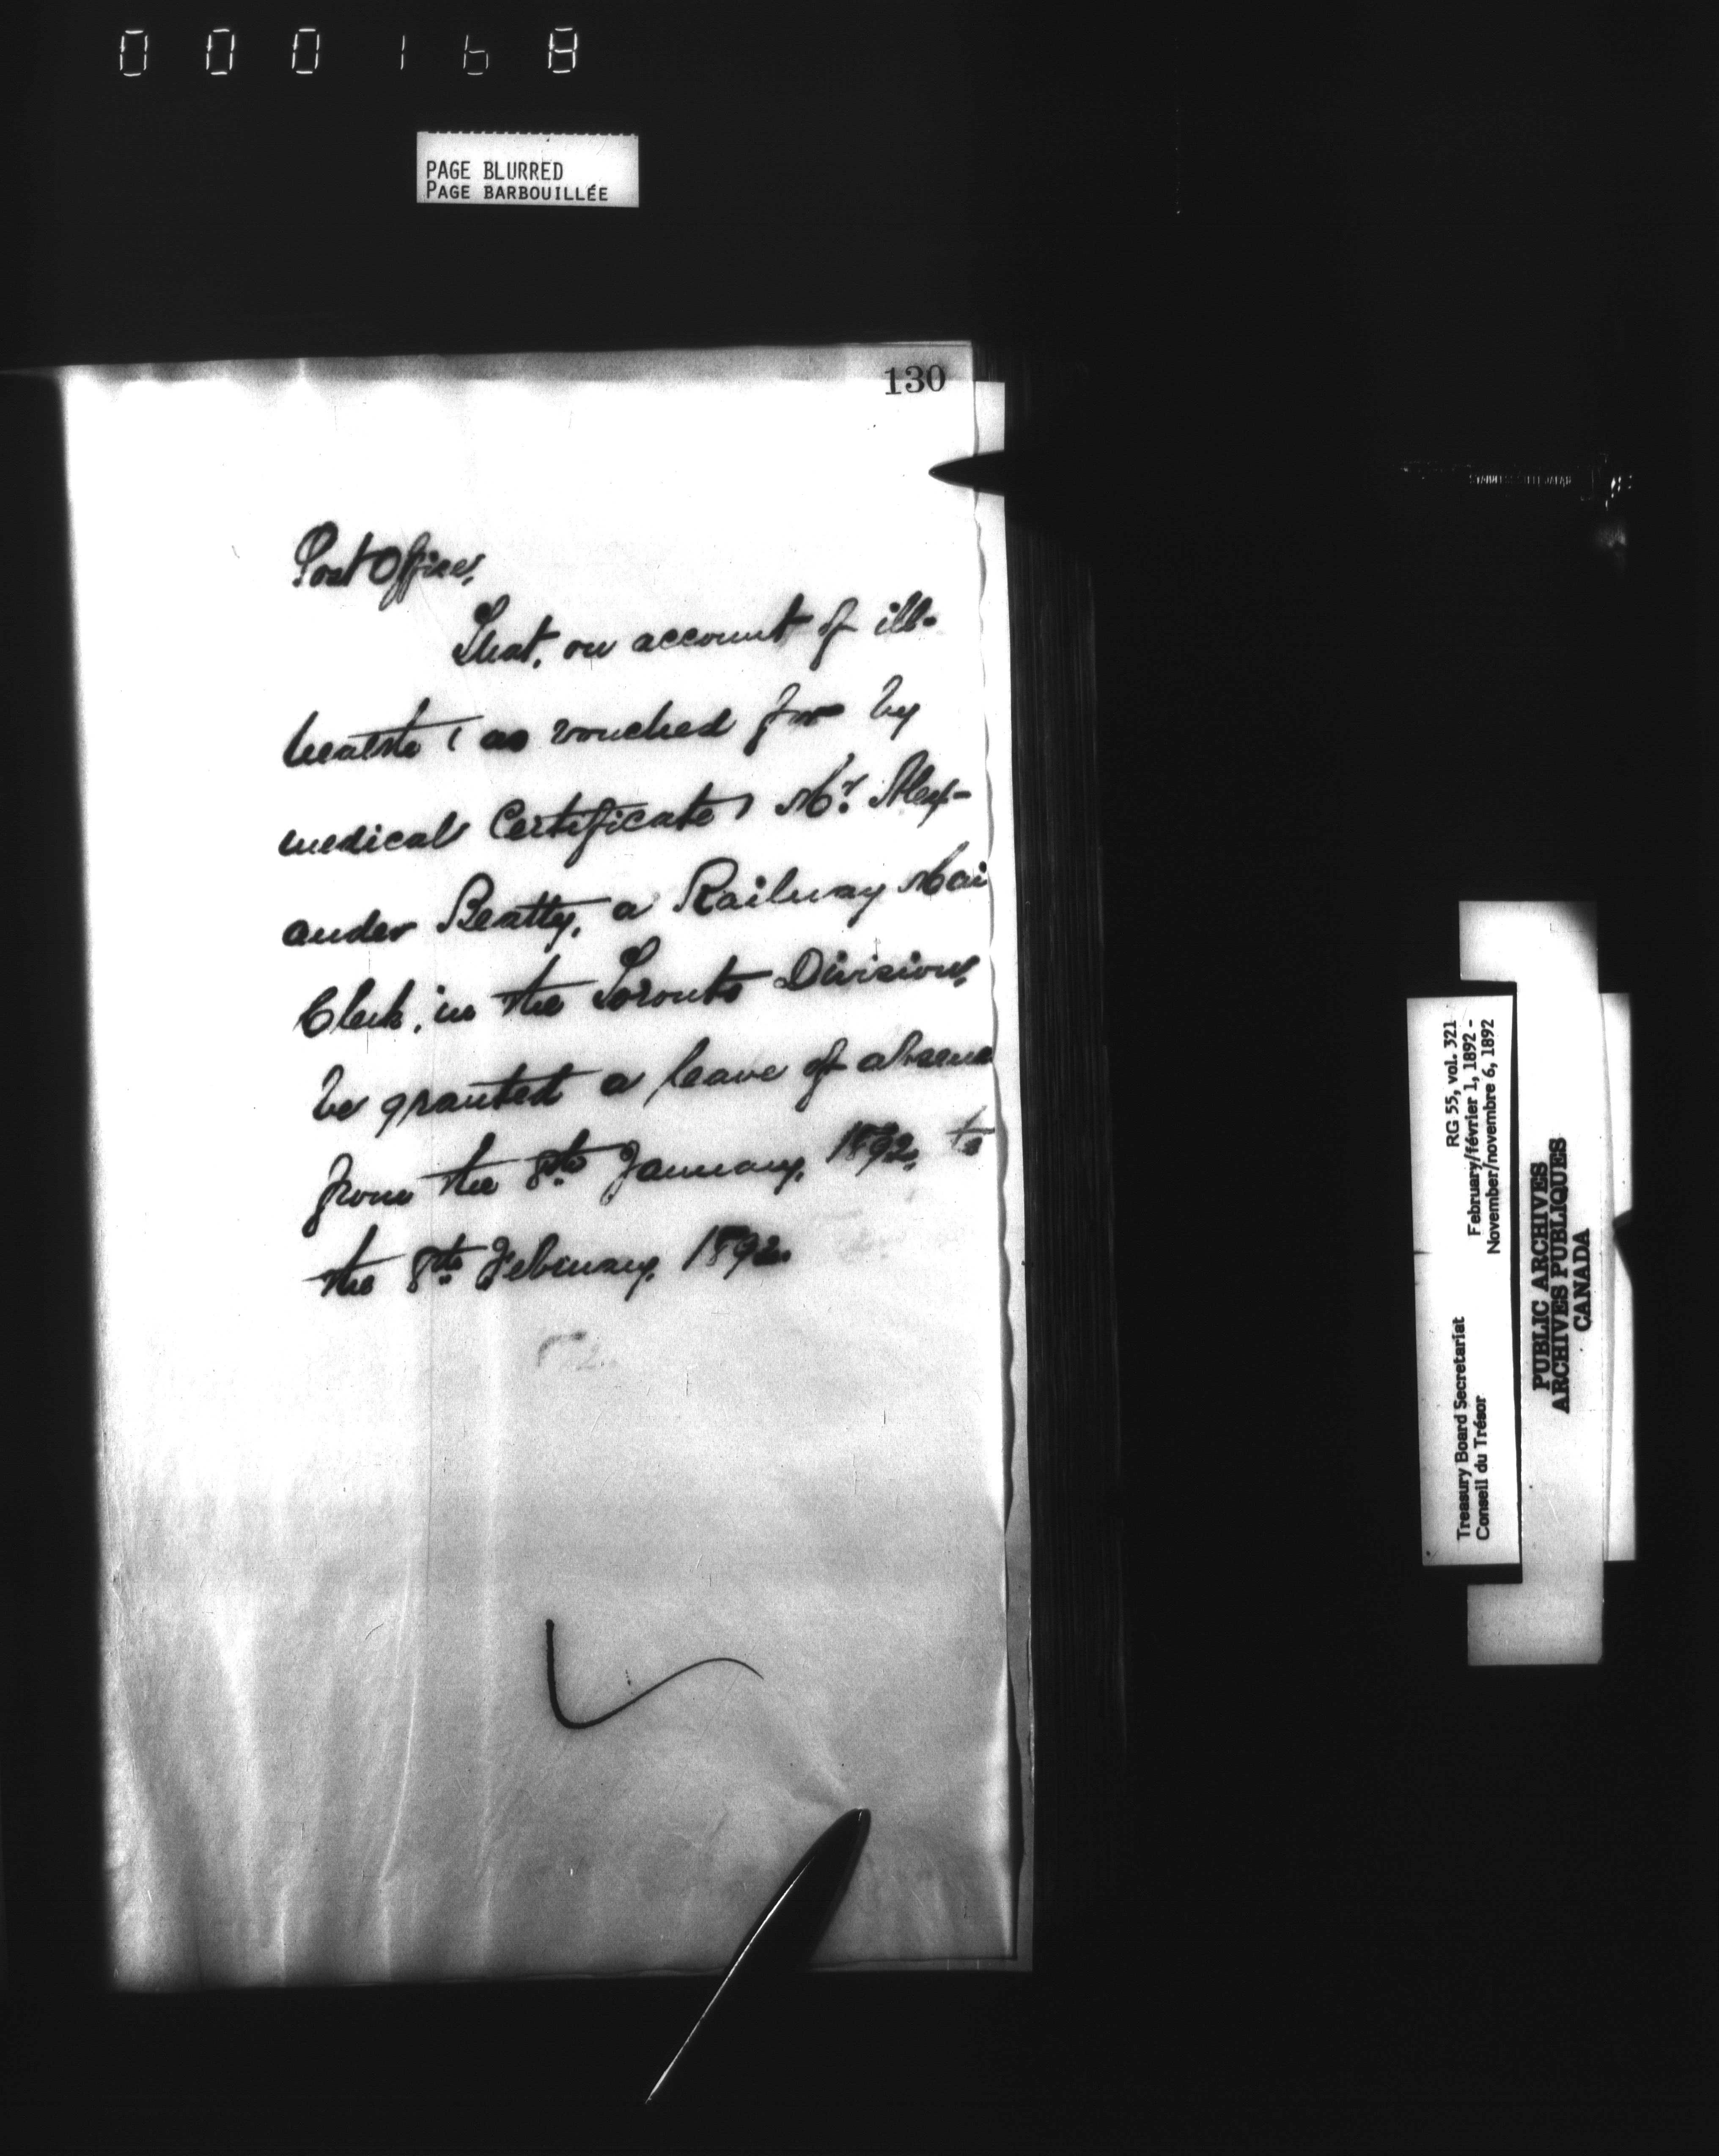 000168
PAGE BLURRED
PAGE BARBOUILLÉE
130
Post Office,
That, on account of ill-
health (as vouched for by
medical Certificate) Mr. Alex-
ander Beatty, a Railway Mai
Clerk, in the Toronto Division,
be granted a leave of absence
from the 8th January, 1892, to
the 8th February, 1892.
RG 55, vol. 321
February/février 1, 1892 -
November/novembre 6, 1892
Treasury Board Secretariat
Conseil du Trésor
PUBLIC ARCHIVES
ARCHIVES PUBLIQUES
CANADA